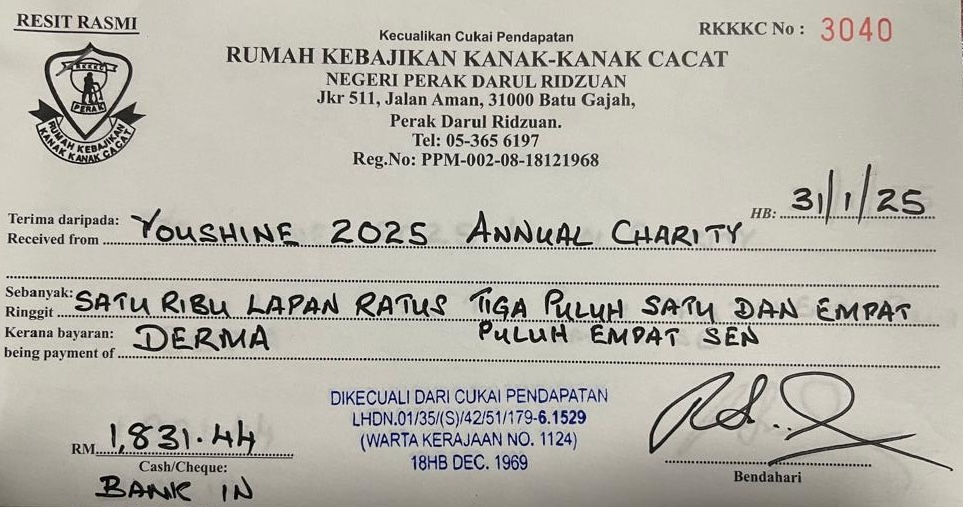 RESIT RASMI
RKKKC No : 3040
Kecualikan Cukai Pendapatan
RUMAH KEBAJIKAN KANAK-KANAK CACAT
NEGERI PERAK DARUL RIDZUAN
Jkr 511, Jalan Aman, 31000 Batu Gajah,
Perak Darul Ridzuan.
Tel: 05-365 6197
Reg.No: PPM-002-08-18121968
RKKKC
PERAK
RUMAH KEBAJIKAN
KANAK KANAK CACAT
HB: 31/1/25
Terima daripada:
Received from YOUSHINE 2025 ANNUAL CHARITY
Sebanyak:
Ringgit SATU RIBU LAPAN RATUS TIGA PULUH SATU DAN EMPAT
PULUH EMPAT SEN
Kerana bayaran: DERMA
being payment of
DIKECUALI DARI CUKAI PENDAPATAN
LHDN.01/35/(S)/42/51/179-6.1529
(WARTA KERAJAAN NO. 1124)
18HB DEC. 1969
RM 1,831.44
Cash/Cheque:
BANK IN
Bendahari